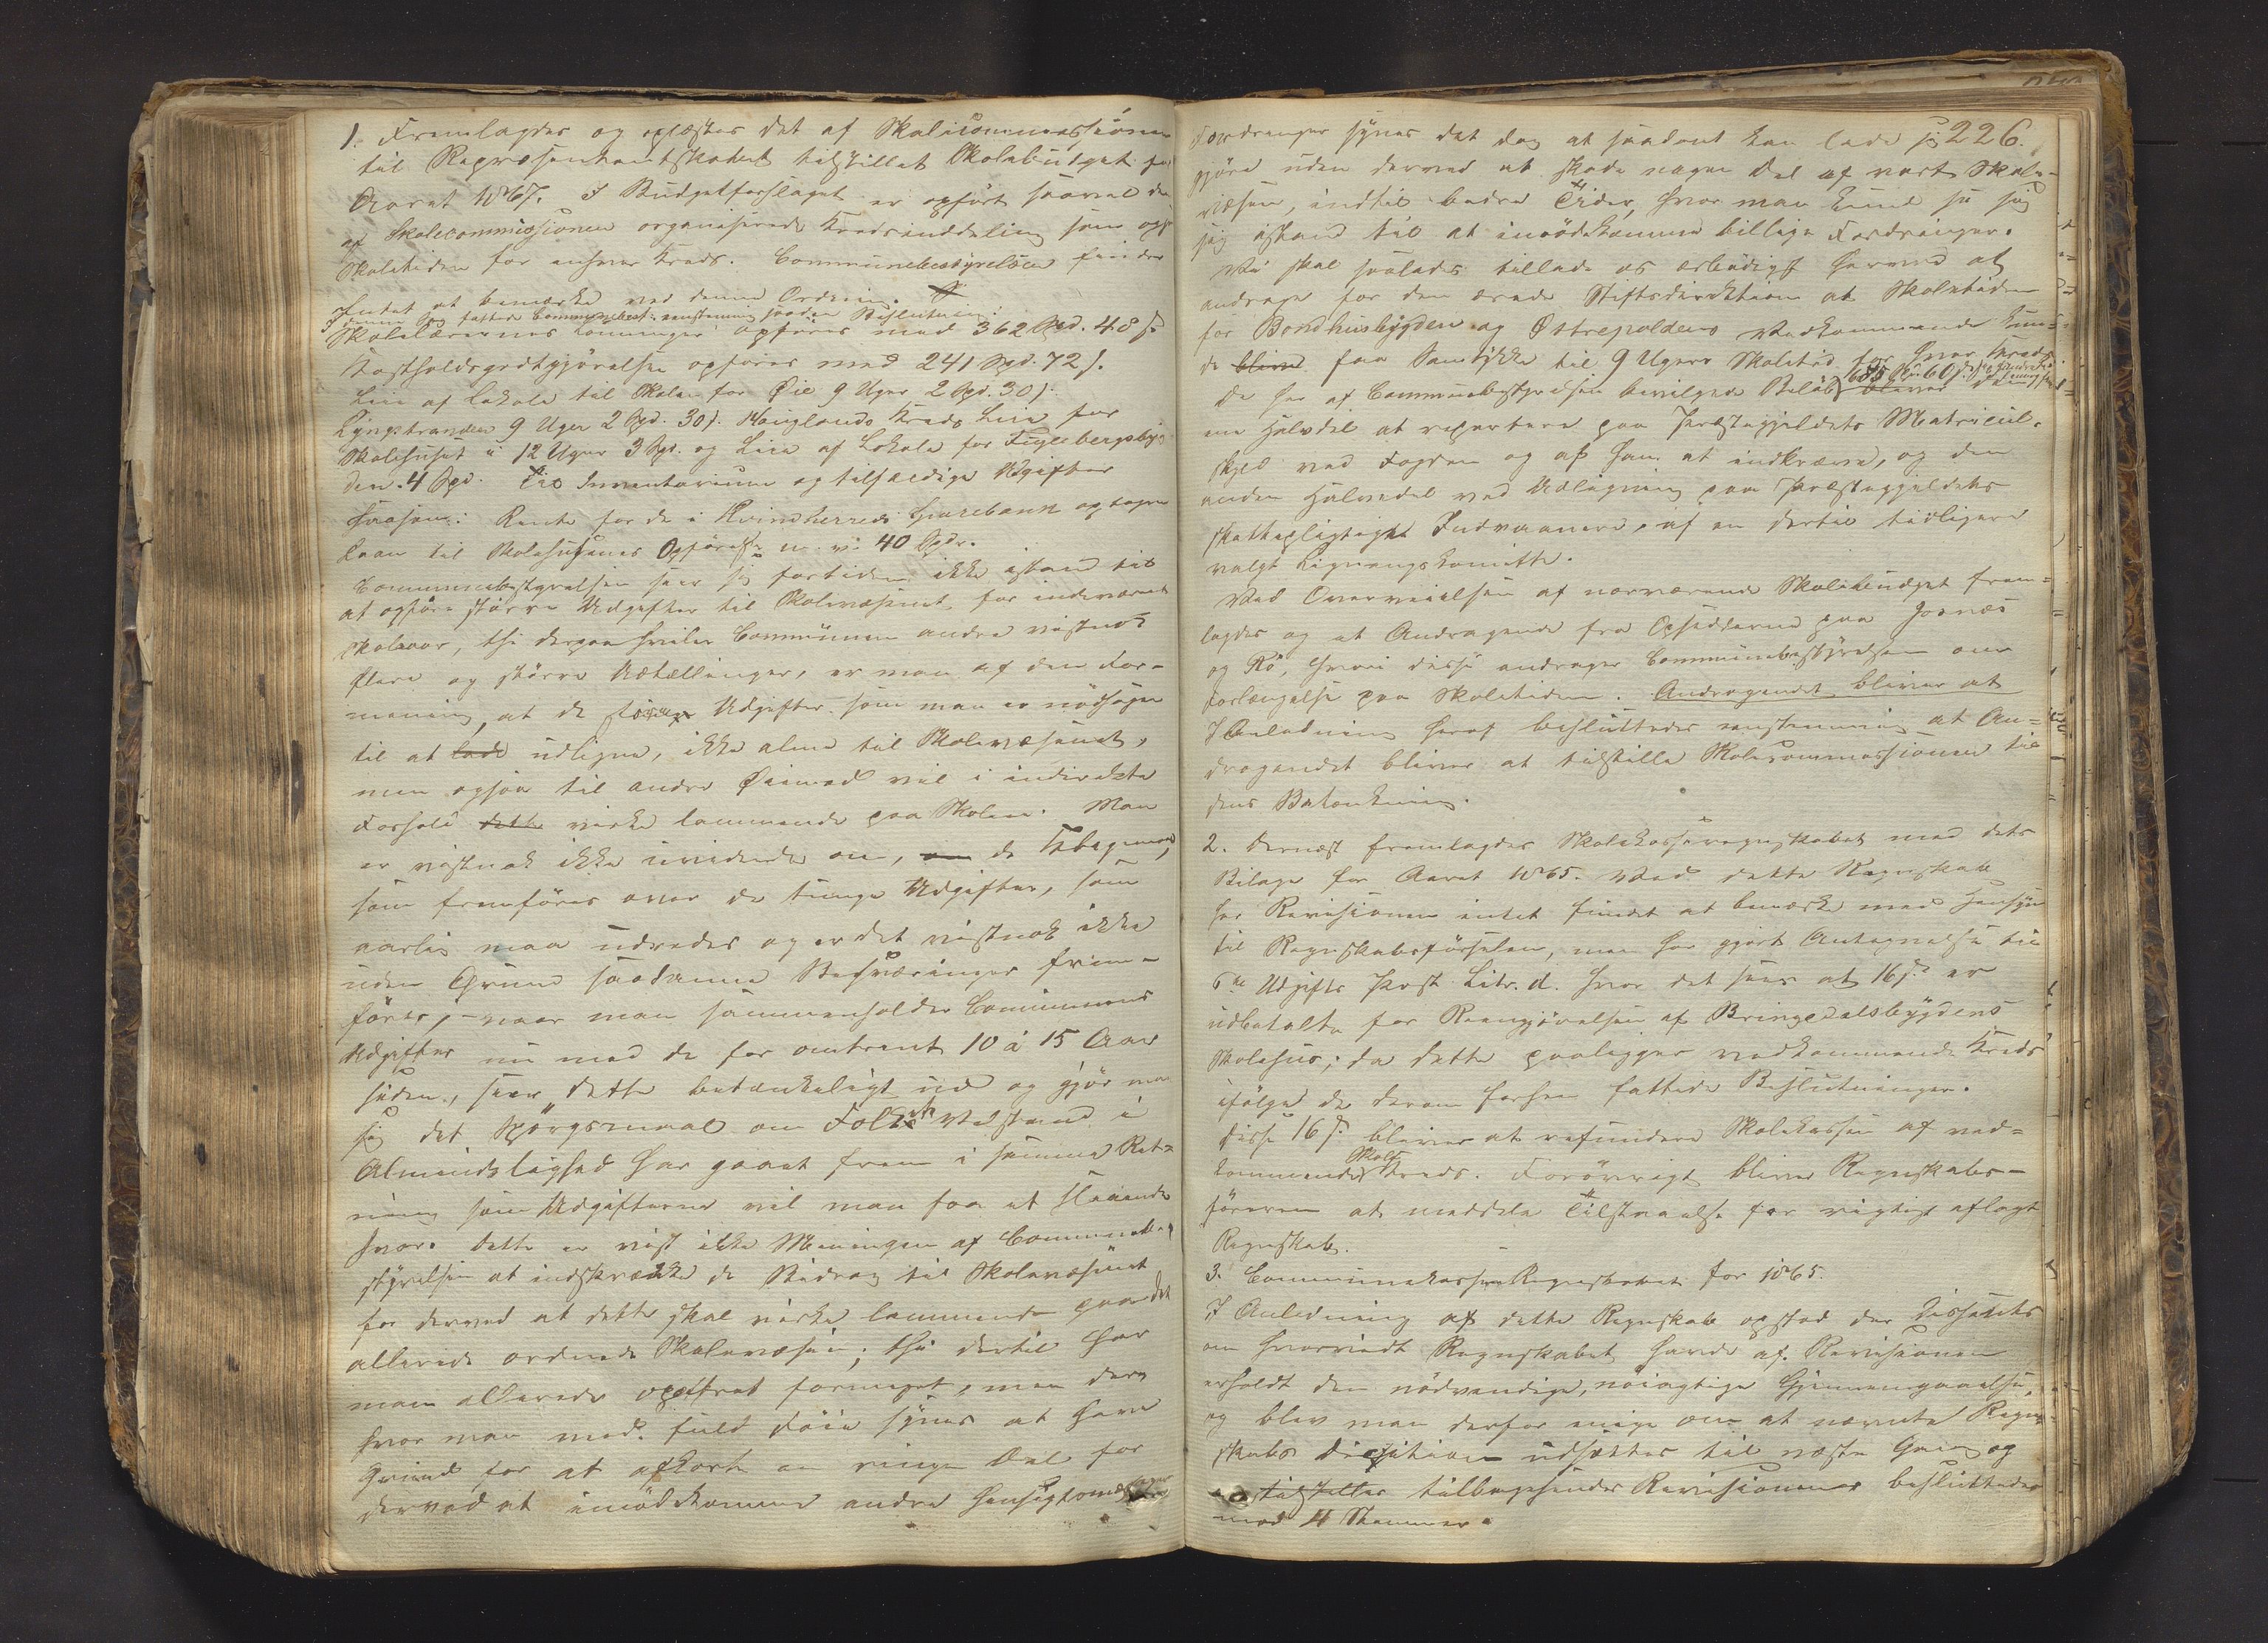 1. Fremlagdes og oplæstes det af Skolecommissionen
til Repræsentantskabet tilstillet Skolebudget for
Aaret 1867. I Budgetforslaget er opført saavel den
af Skolecommissionen organiserede Kredsinddeling som og
Skoletiden for enhver Kreds. Communebestyrelsen finder
Intet at bemærke ved denne Ordning.
I denne Sag fattede Communebest. enstemmig saadan Beslutning:
Skolelærernes Lønninger opføres med 362 Spd. 48 s.
Kostholdsgodtgjørelsen opføres med 241 Spd. 72 s.
Leie af Lokale til Skolen for Øie 9 Uger 2 Spd. 30 s.
Lyngstranden 9 Uger 2 Spd. 30 s. Houglands Kreds Leie for
Skolehuset i 12 Uger 3 Spd. og Leie af Lokale for Fuglebergsbyg
den 4 Spd. Til Inventarium og tilfældige Udgifter
saasom: Rente for de i Kvindherreds Sparebank optagne
Laan til Skolehusenes Opførelse m. v. 40 Spdr.
Communebestyrelsen seer sig fortiden ikke istand til
at opføre større Udgifter til Skolevæsenet for indeværende
Skoleaar, thi derpaa hviler Communen andre vistnok
flere og større Udtællinger, er man af den For-
mening, at de større Udgifter som man er nødsaget
til at lade udligne, ikke alene til Skolevæsenet,
men ogsaa til andre Øiemed vil i indirekte
Forhold dette virke lammende paa Skolen. Man
er vistnok ikke uvidende om, om de Klagemaal,
som fremføres over de tunge Udgifter, som
aarlig maa udredes og er det vistnok ikke
uden Grund saadanne Besværinger frem-
føres, – naar man sammenholder Communens
Udgifter nu med de for omtrent 10 à 15 Aar
siden, seer dette betænkeligt ud og gjør man
sig det Spørgsmaal om Folkets Velstand i
Almindelighed har gaaet frem i samme Ret-
ning som Udgifterne vil man faa et slaaende
Svar. Dette er vist ikke Meningen af Communebe-
styrelsen at indskrænke de Bidrag til Skolevæsenet
for derved at dette skal virke lammende paa det
allerede ordnede Skolevæsen; thi dertil har
man allerede opofret formeget, men der
hvor man med fuld Føie synes at have
Grund for at afkorte en ringe Deel for
derved at imødekomme andre hensigtsmæssige
226.
Fordringer synes det dog at saadant kan lade sig
gjøre uden derved at skade nogen Del af vort Skole-
væsen, indtil bedre Tider, hvor man kunde se sig
sig istand til at imødekomme billige Fordringer.
Vi skal saaledes tillade os ærbødigst herved at
andrage for den ærede Stiftsdirektion at Skoletiden
for Bondhusbygden og Østrepoldens Vedkommende kun-
de blive faa Samtykke til 9 Ugers Skoletid for hver Kreds.
De her af Communebestyrelsen bevilgede Beløb 685 Spd. 60 s. blever
ene Halvdel at repartere paa Præstegjældets Matricul-
skyld ved Fogden og af ham at indkræve, og den
anden Halvdel ved Udligning paa Præstegjældets
skattepligtige Indvaanere, af en dertil tidligere
valgt Ligningskomitte.
Ved Overveielsen af nærværende Skolebudget frem-
lagdes og et Andragende fra Opsidderne paa Goenæs
og Rø, hvori disse andrager Communebestyrelsen om
Forlængelse paa Skoletiden. Andragendet bliver at
I Anledning heraf besluttedes enstemmig at An-
dragendet bliver at tilstille Skolecommissionen til
dens Betænkning.
2. Dernæst fremlagdes Skolekasseregnskabet med dets
Bilage for Aaret 1865. Ved dette Regnskab
har Revisionen intet fundet at bemærke med Hensyn
til Regnskabsførselen, men har gjort Antegnelse til
6te Udgifts Post Litr. d. hvor det sees at 16 s. er
udbetalte for Reengjørelsen af Bringedalsbygdens
Skolehus; da dette paaligger vedkommende Kreds
ifølge de derom forhen fattede Beslutninger.
disse 16 s. bliver at refundere Skolekassen af ved-
kommende Skole Kreds. Forøvrigt bliver Regnskabs-
føreren at meddele Tilstaaelse for rigtigt aflagt
Regnskab.
3. Communekasse Regnskabet for 1865.
I Anledning af dette Regnskab opstod der Dissents
om hvorvidt Regnskabet havde af Revisionen
erholdt den nødvendige, nøiagtige Gjennemgaaelse,
og blev man derfor enige om at nævnte Regn-
skabs Decision udsættes til næste Gang og
tilstilles tilbagesendes Revisionen besluttedes
med 4 Stemmer.